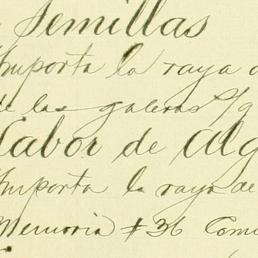 Semillas
Importa la raya
de las galeras S/g
Labor de Alg
Importa la raya de
Memoria # 36 Comi